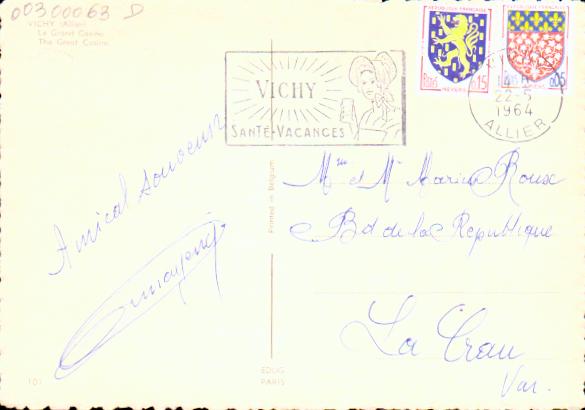 00300063 D
VICHY (Allier)
Le Grand Casino
The Great Casino
VICHY
SANTÉ-VACANCES
RÉPUBLIQUE FRANÇAISE
Postes 0,15
NEVERS
0,05
22-5
1964
ALLIER
Amical souvenir
Printed in Belgium
Mme et Mr Marius Roux
Bd de la République
La Crau
Var.
EDUG
PARIS
101